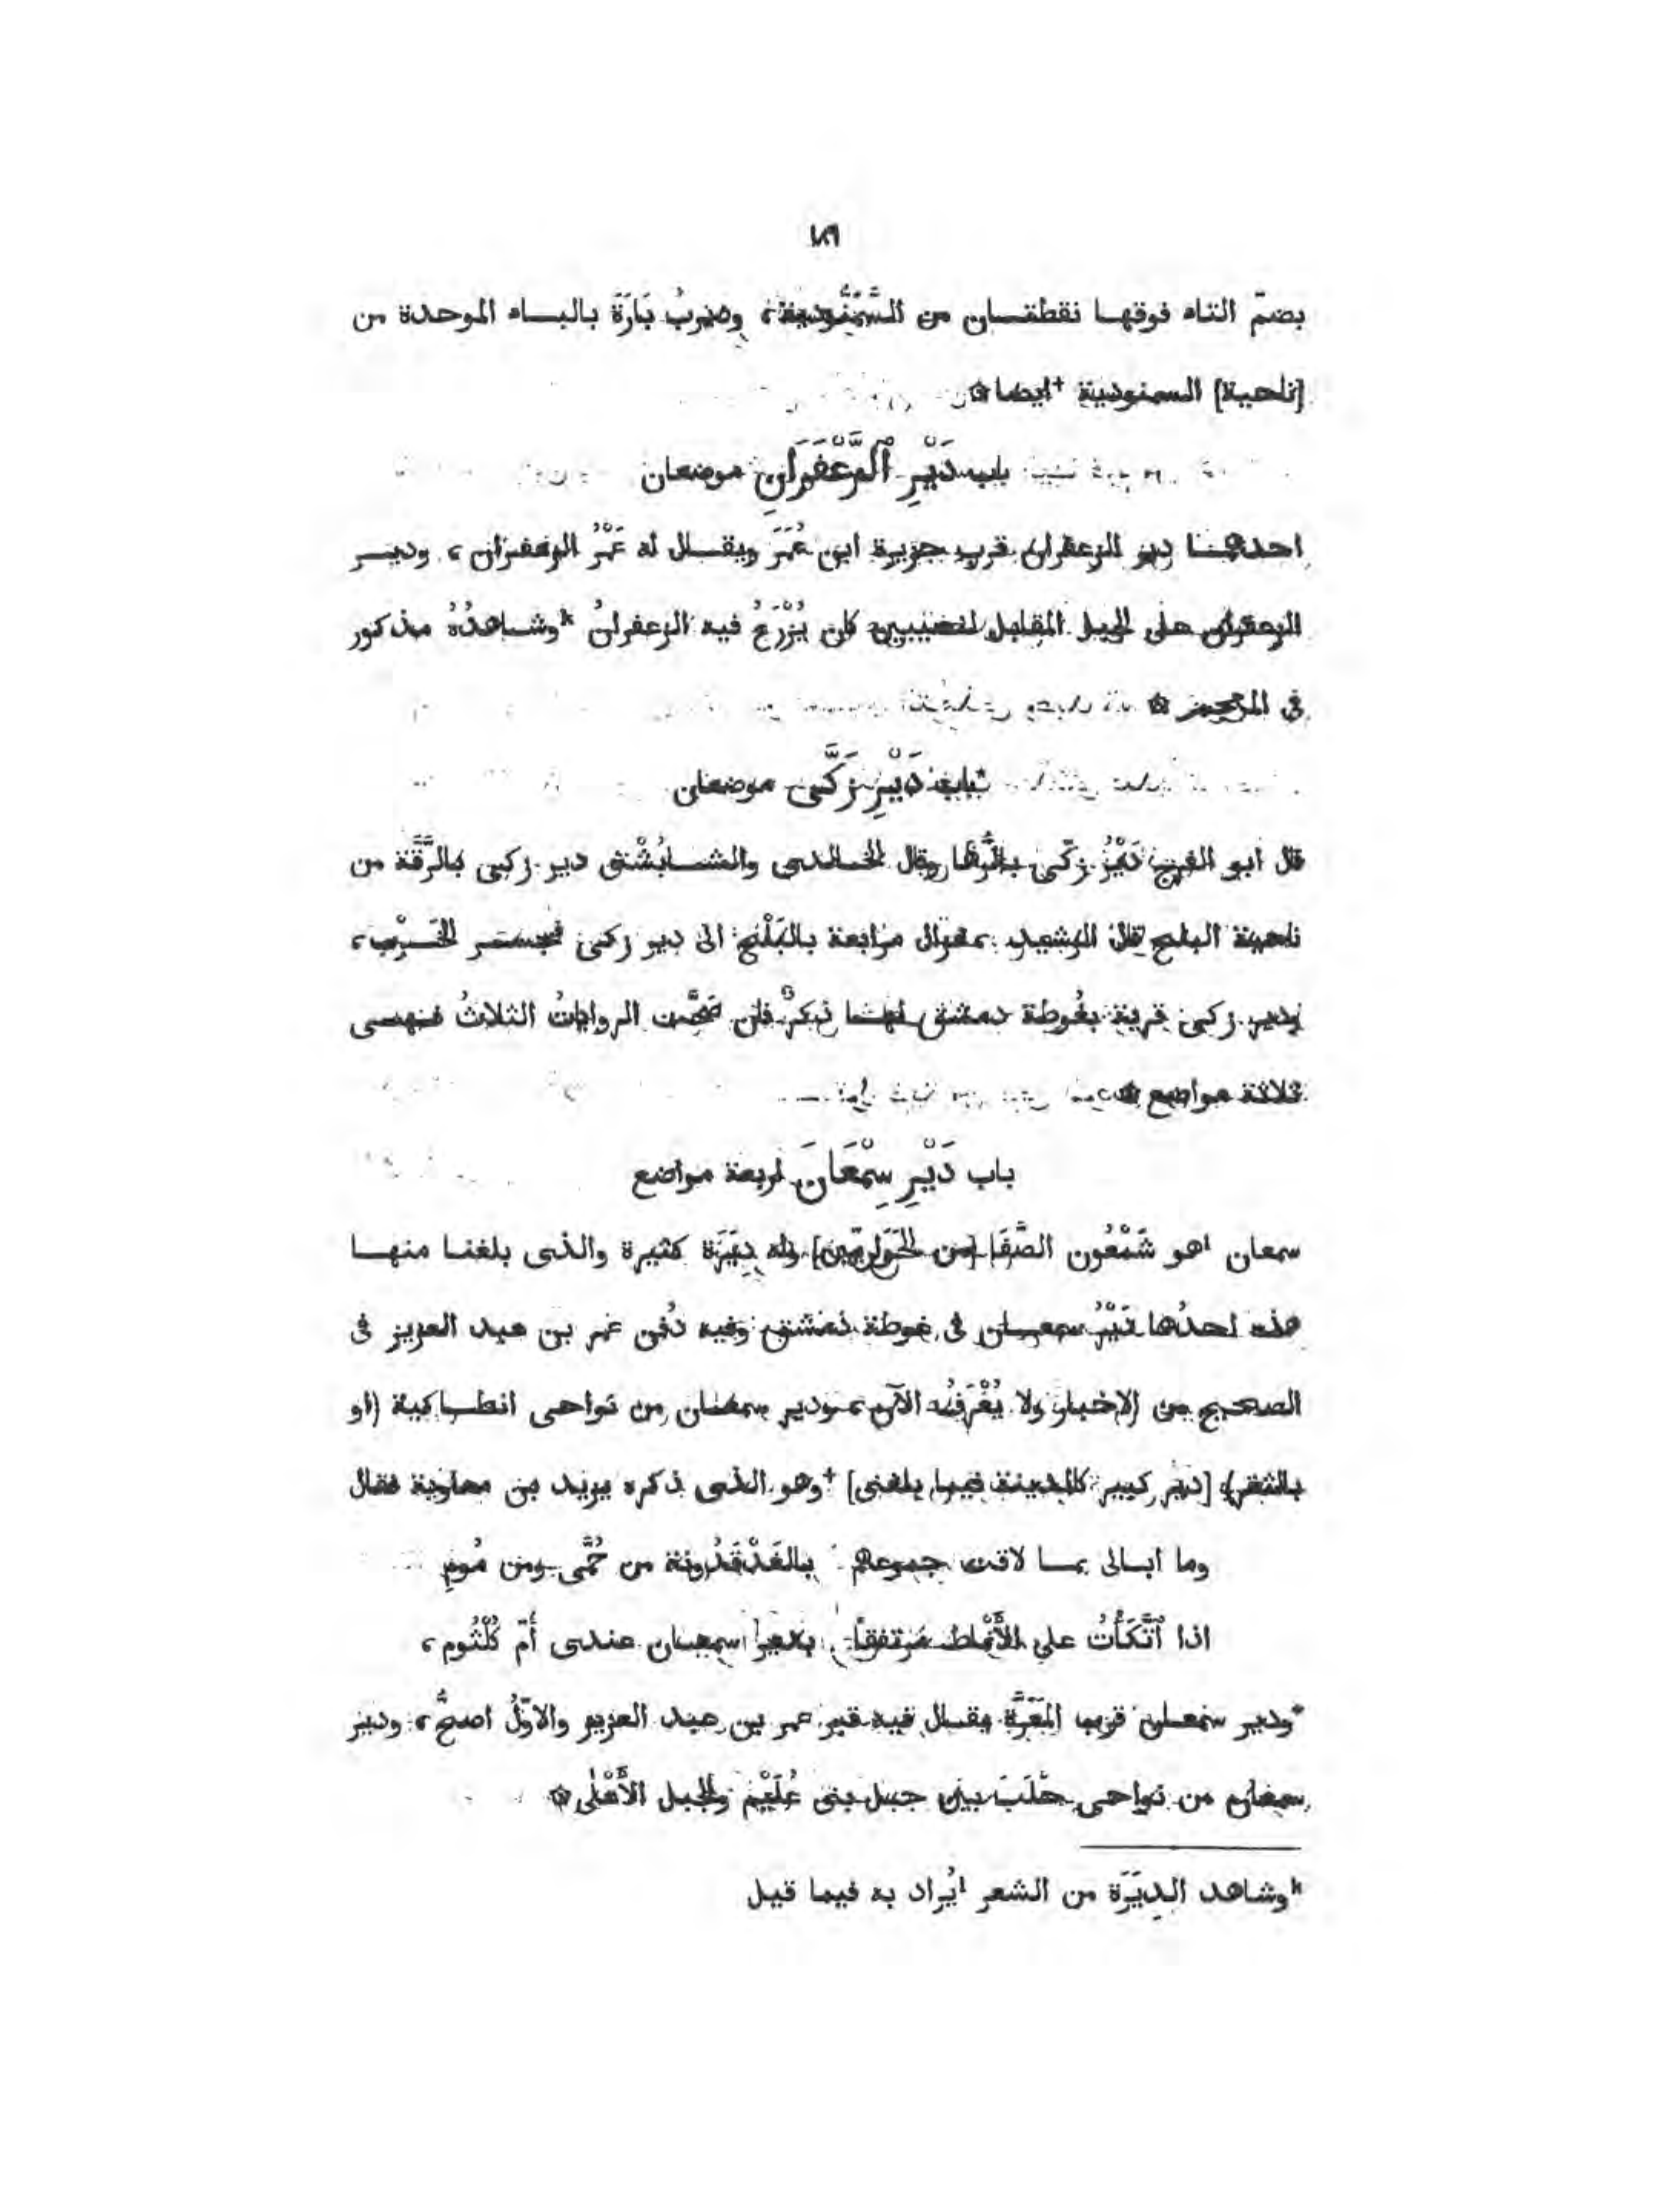 ١٨٩
بضمّ التاء فوقها نقطتان من السَّمَنُّودية، ودَيرُ بَارَةَ بالباء الموحدة من
[ناحية] السمنودية +ايضا ۞
باب دَيْرِ الزَّعْفَرَانِ موضعان
احدهما دير الزعفران قرب جزيرة ابن عُمَرَ ويقال له عُمْرُ الزعفران، ودير
الزعفران على الجبل المقابل لنصيبين كان يُزْرَعُ فيه الزعفرانُ kوشاهدُهُ مذكور
فى المعجم ۞
*باب دَيْرِ زَكَّى موضعان
قال ابو الفرج دَيْرُ زكّى بالرُّها وقال الخالدى والشابُشْتى دير زكى بالرَّقَّة من
ناحية البليخ قال الرشيد مرابعة بالبَلْخ الى دير زكى فجسر الخَرِب،
ودير زكى قرية بغُوطة دمشق لها ذكرٌ فان صَحَّت الرواياتُ الثلاثُ فهى
ثلاثة مواضع ۞
باب دَيْرِ سِمْعَانَ اربعة مواضع
سمعان lهو شَمْعُون الصَّفَا [من الحَوَارِيّين] وله دِيَرَة كثيرة والذى بلغنا منها
هذه احدُها دَيْرُ سمعان فى غوطة دمشق وفيه دُفن عمر بن عبد العزيز فى
الصحيح من الاخبار ولا يُعْرَفُ الآن، ودير سمعان من نواحى انطاكية (او
بالثغر) [دير كبير كالمدينة فيما بلغنى] +وهو الذى ذكره يزيد بن معاوية فقال
وما ابالى بما لاقت جموعهم بالغَذْقَدُونة من حُمَّى ومن مُومِ
اذا ٱتَّكَأْتُ على الأَنْماط مرتفقًا بدير سمعان عندى أُمّ كُلْثُوم،
*ودير سمعان قرب المَعَرَّة يقال فيه قبر عمر بن عبد العزيز والاوّلُ اصحُّ، ودير
سمعان من نواحى حَلَبَ بين جبل بنى عُلَيْم والجبل الأَعْلى ۞
kوشاهد الدِيَرَة من الشعر lيُراد به فيما قيل